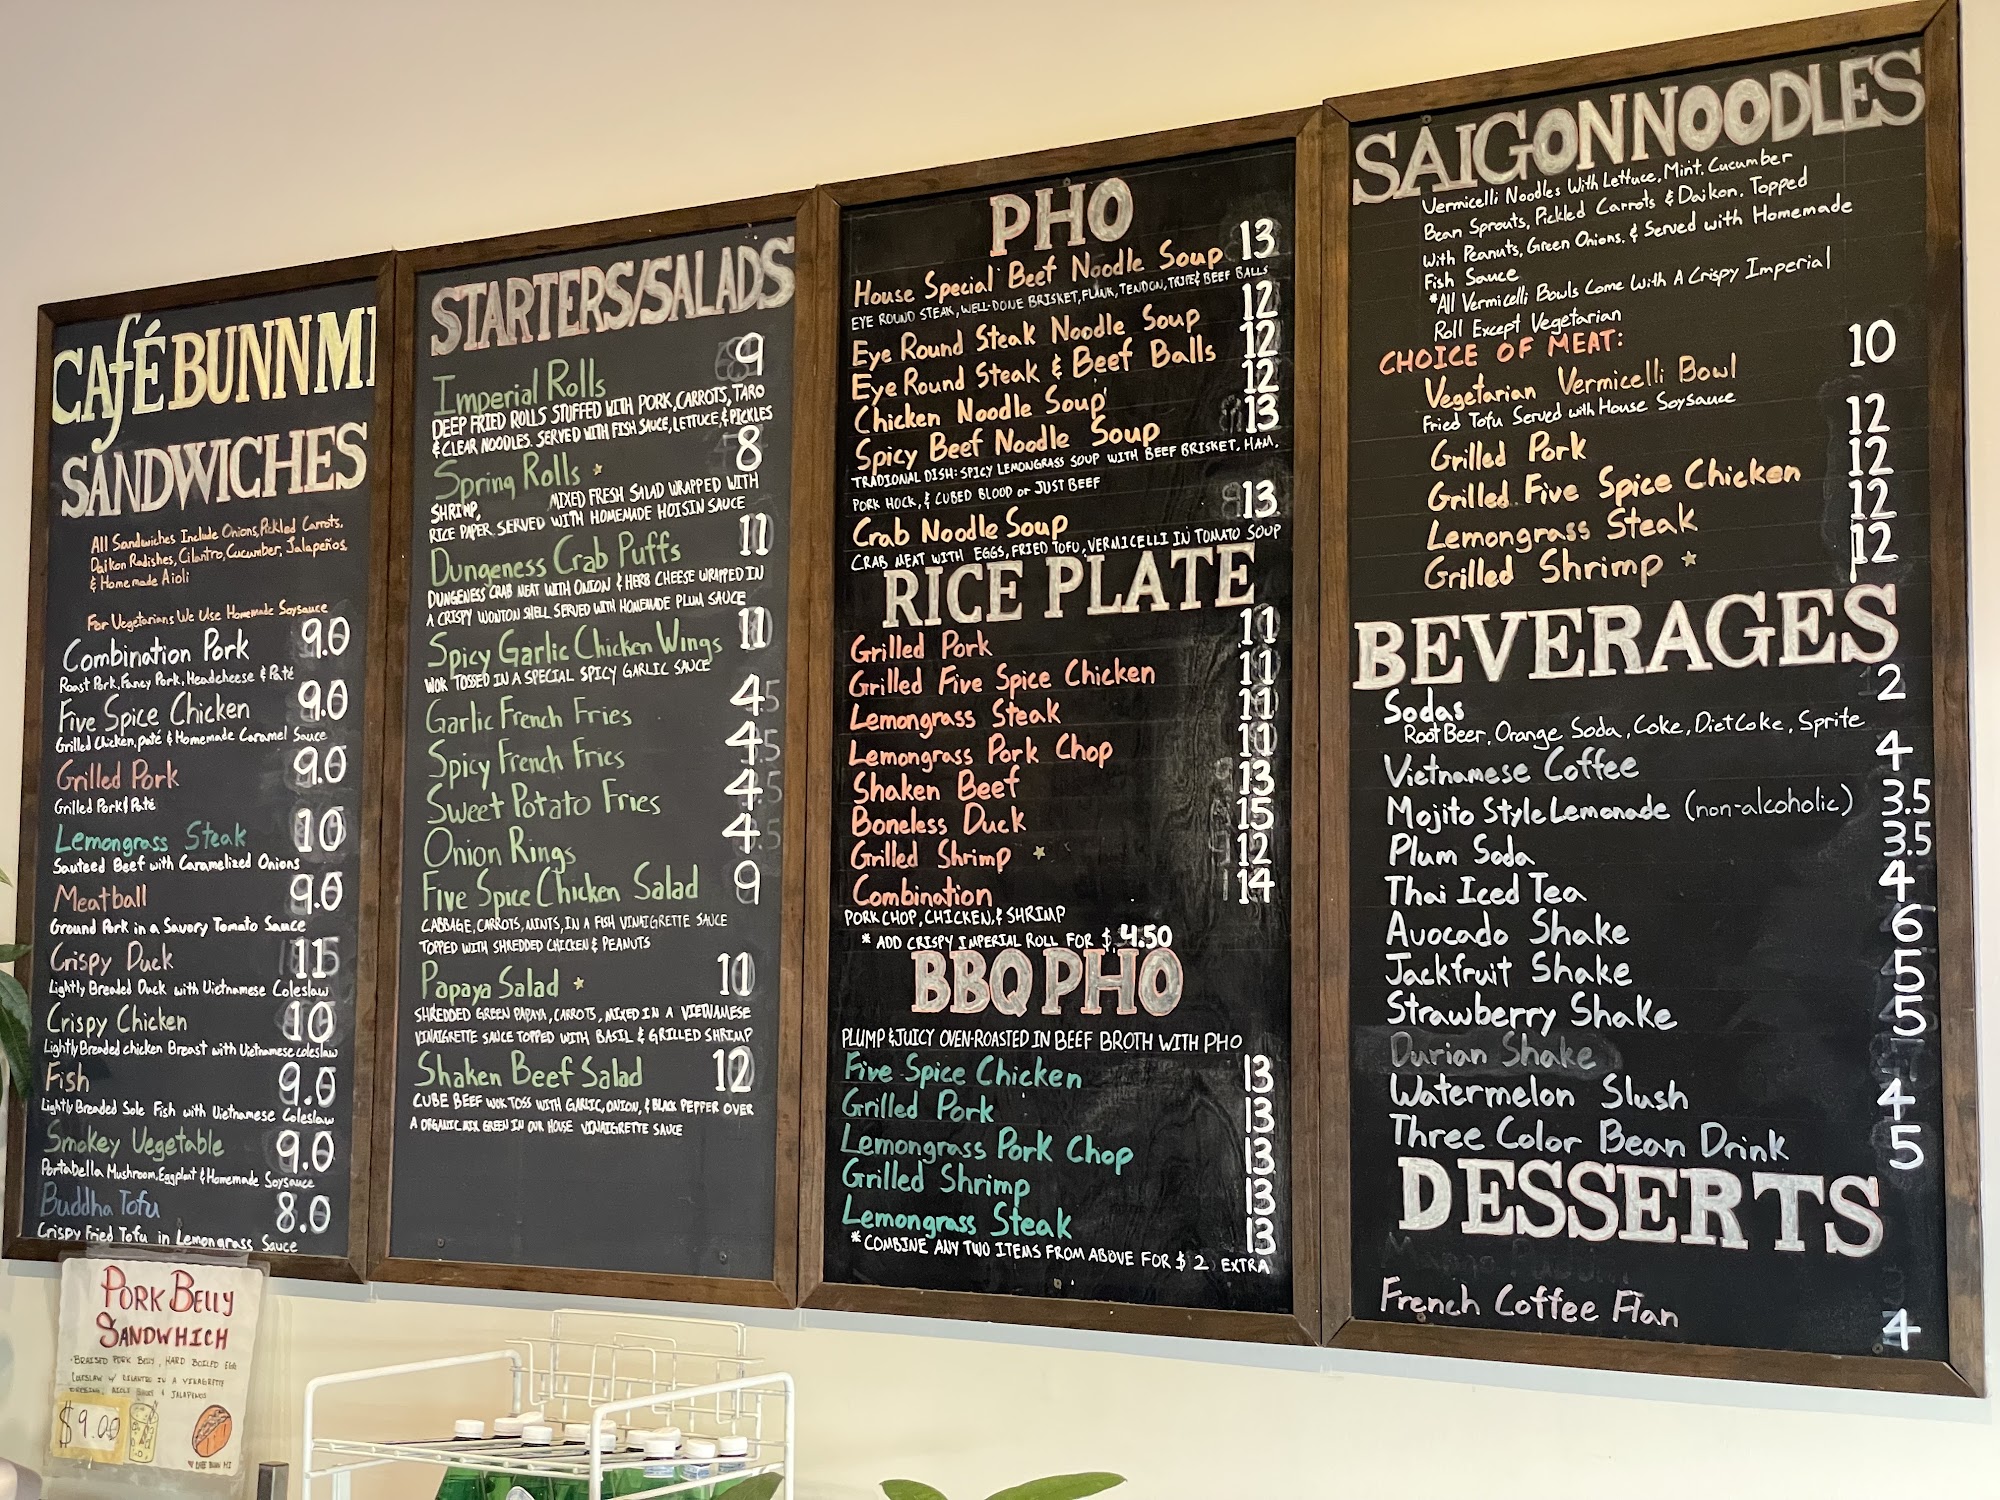 Café BUNN MI
SANDWICHES
All Sandwiches Include Onions, Pickled Carrots,
Daikon Radishes, Cilantro, Cucumber, Jalapeños
& Homemade Aioli
For Vegetarians We Use Homemade Soysauce
Combination Pork 9.0
Roast Pork, Fancy Pork, Headcheese & Paté
Five Spice Chicken 9.0
Grilled Chicken, paté & Homemade Caramel Sauce
Grilled Pork 9.0
Grilled Pork & Paté
Lemongrass Steak 10
Sauteed Beef with Caramelized Onions
Meatball 9.0
Ground Pork in a Savory Tomato Sauce
Crispy Duck 11
Lightly Breaded Duck with Vietnamese Coleslaw
Crispy Chicken 10
Lightly Breaded chicken Breast with Vietnamese coleslaw
Fish 9.0
Lightly Breaded Sole Fish with Vietnamese Coleslaw
Smokey Vegetable 9.0
Portabella Mushroom, Eggplant & Homemade Soysauce
Buddha Tofu 8.0
Crispy Fried Tofu in Lemongrass Sauce
PORK BELLY
SANDWHICH
BRAISED PORK BELLY, HARD BOILED EGG
COLESLAW W/ CILANTRO IN A VINAGRETTE
JALAPENOS
$9.00
STARTERS/SALADS
Imperial Rolls 9
DEEP FRIED ROLLS STUFFED WITH PORK, CARROTS, TARO
& CLEAR NOODLES. SERVED WITH FISH SAUCE, LETTUCE, & PICKLES
Spring Rolls 8
SHRIMP, MIXED FRESH SALAD WRAPPED WITH
RICE PAPER SERVED WITH HOMEMADE HOISIN SAUCE
Dungeness Crab Puffs 11
DUNGENESS CRAB MEAT WITH ONION & HERB CHEESE WRAPPED IN
A CRISPY WONTON SHELL SERVED WITH HOMEMADE PLUM SAUCE
Spicy Garlic Chicken Wings 11
WOK TOSSED IN A SPECIAL SPICY GARLIC SAUCE
Garlic French Fries 4
Spicy French Fries 4
Sweet Potato Fries 4
Onion Rings 4
Five Spice Chicken Salad 9
CABBAGE, CARROTS, MINTS, IN A FISH VINAIGRETTE SAUCE
TOPPED WITH SHREDDED CHICKEN & PEANUTS
Papaya Salad 11
SHREDDED GREEN PAPAYA, CARROTS, MIXED IN A VIETNAMESE
VINAIGRETTE SAUCE TOPPED WITH BASIL & GRILLED SHRIMP
Shaken Beef Salad 12
CUBE BEEF WOK TOSS WITH GARLIC, ONION, & BLACK PEPPER OVER
A ORGANIC MIX GREEN IN OUR HOUSE VINAIGRETTE SAUCE
PHO
House Special Beef Noodle Soup 13
EYE ROUND STEAK, WELL-DONE BRISKET, FLANK, TENDON, TRIPE & BEEF BALLS
Eye Round Steak Noodle Soup 12
Eye Round Steak & Beef Balls 12
Chicken Noodle Soup 12
Spicy Beef Noodle Soup 13
TRADIONAL DISH: SPICY LEMONGRASS SOUP WITH BEEF BRISKET, HAM,
PORK HOCK, & CUBED BLOOD or JUST BEEF
Crab Noodle Soup 13
CRAB MEAT WITH EGGS, FRIED TOFU, VERMICELLI IN TOMATO SOUP
RICE PLATE
Grilled Pork 11
Grilled Five Spice Chicken 11
Lemongrass Steak 11
Lemongrass Pork Chop 11
Shaken Beef 13
Boneless Duck 15
Grilled Shrimp 12
Combination 14
PORK CHOP, CHICKEN, & SHRIMP
* ADD CRISPY IMPERIAL ROLL FOR $ 4.50
BBQ PHO
PLUMP & JUICY OVEN-ROASTED IN BEEF BROTH WITH PHO
Five Spice Chicken 13
Grilled Pork 13
Lemongrass Pork Chop 13
Grilled Shrimp 13
Lemongrass Steak 13
* COMBINE ANY TWO ITEMS FROM ABOVE FOR $ 2 EXTRA
SAIGON NOODLES
Vermicelli Noodles With Lettuce, Mint, Cucumber
Bean Sprouts, Pickled Carrots & Daikon. Topped
With Peanuts, Green Onions. & Served with Homemade
Fish Sauce
*All Vermicelli Bowls Come With A Crispy Imperial
Roll Except Vegetarian
CHOICE OF MEAT:
Vegetarian Vermicelli Bowl 10
Fried Tofu Served with House Soysauce
Grilled Pork 12
Grilled Five Spice Chicken 12
Lemongrass Steak 12
Grilled Shrimp 12
BEVERAGES
Sodas 2
Root Beer, Orange Soda, Coke, Diet Coke, Sprite
Vietnamese Coffee 4
Mojito Style Lemonade (non-alcoholic) 3.5
Plum Soda 3.5
Thai Iced Tea 4
Avocado Shake 6
Jackfruit Shake 5
Strawberry Shake 5
Durian Shake
Watermelon Slush 4
Three Color Bean Drink 5
DESSERTS
French Coffee Flan 4